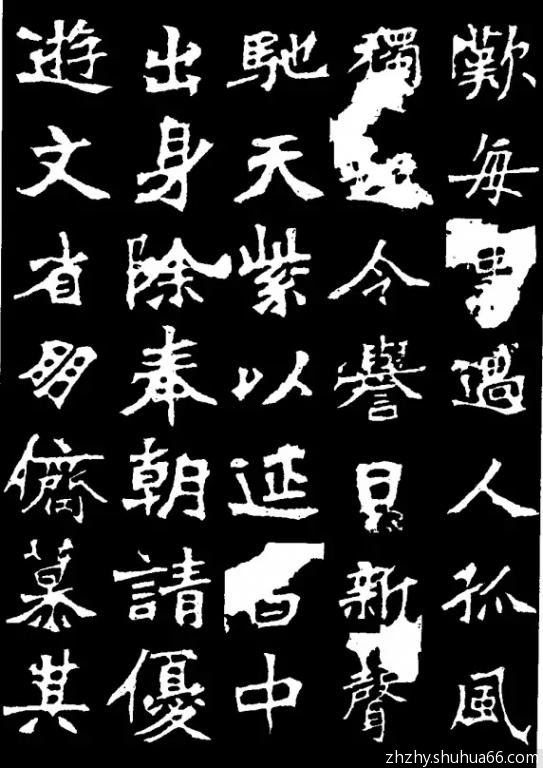 歎每過人孤風
獨令譽日新聲
馳天紫以延中
出身除奉朝請優
遊文省朋儕慕其
zhzhy.shuhua66.com